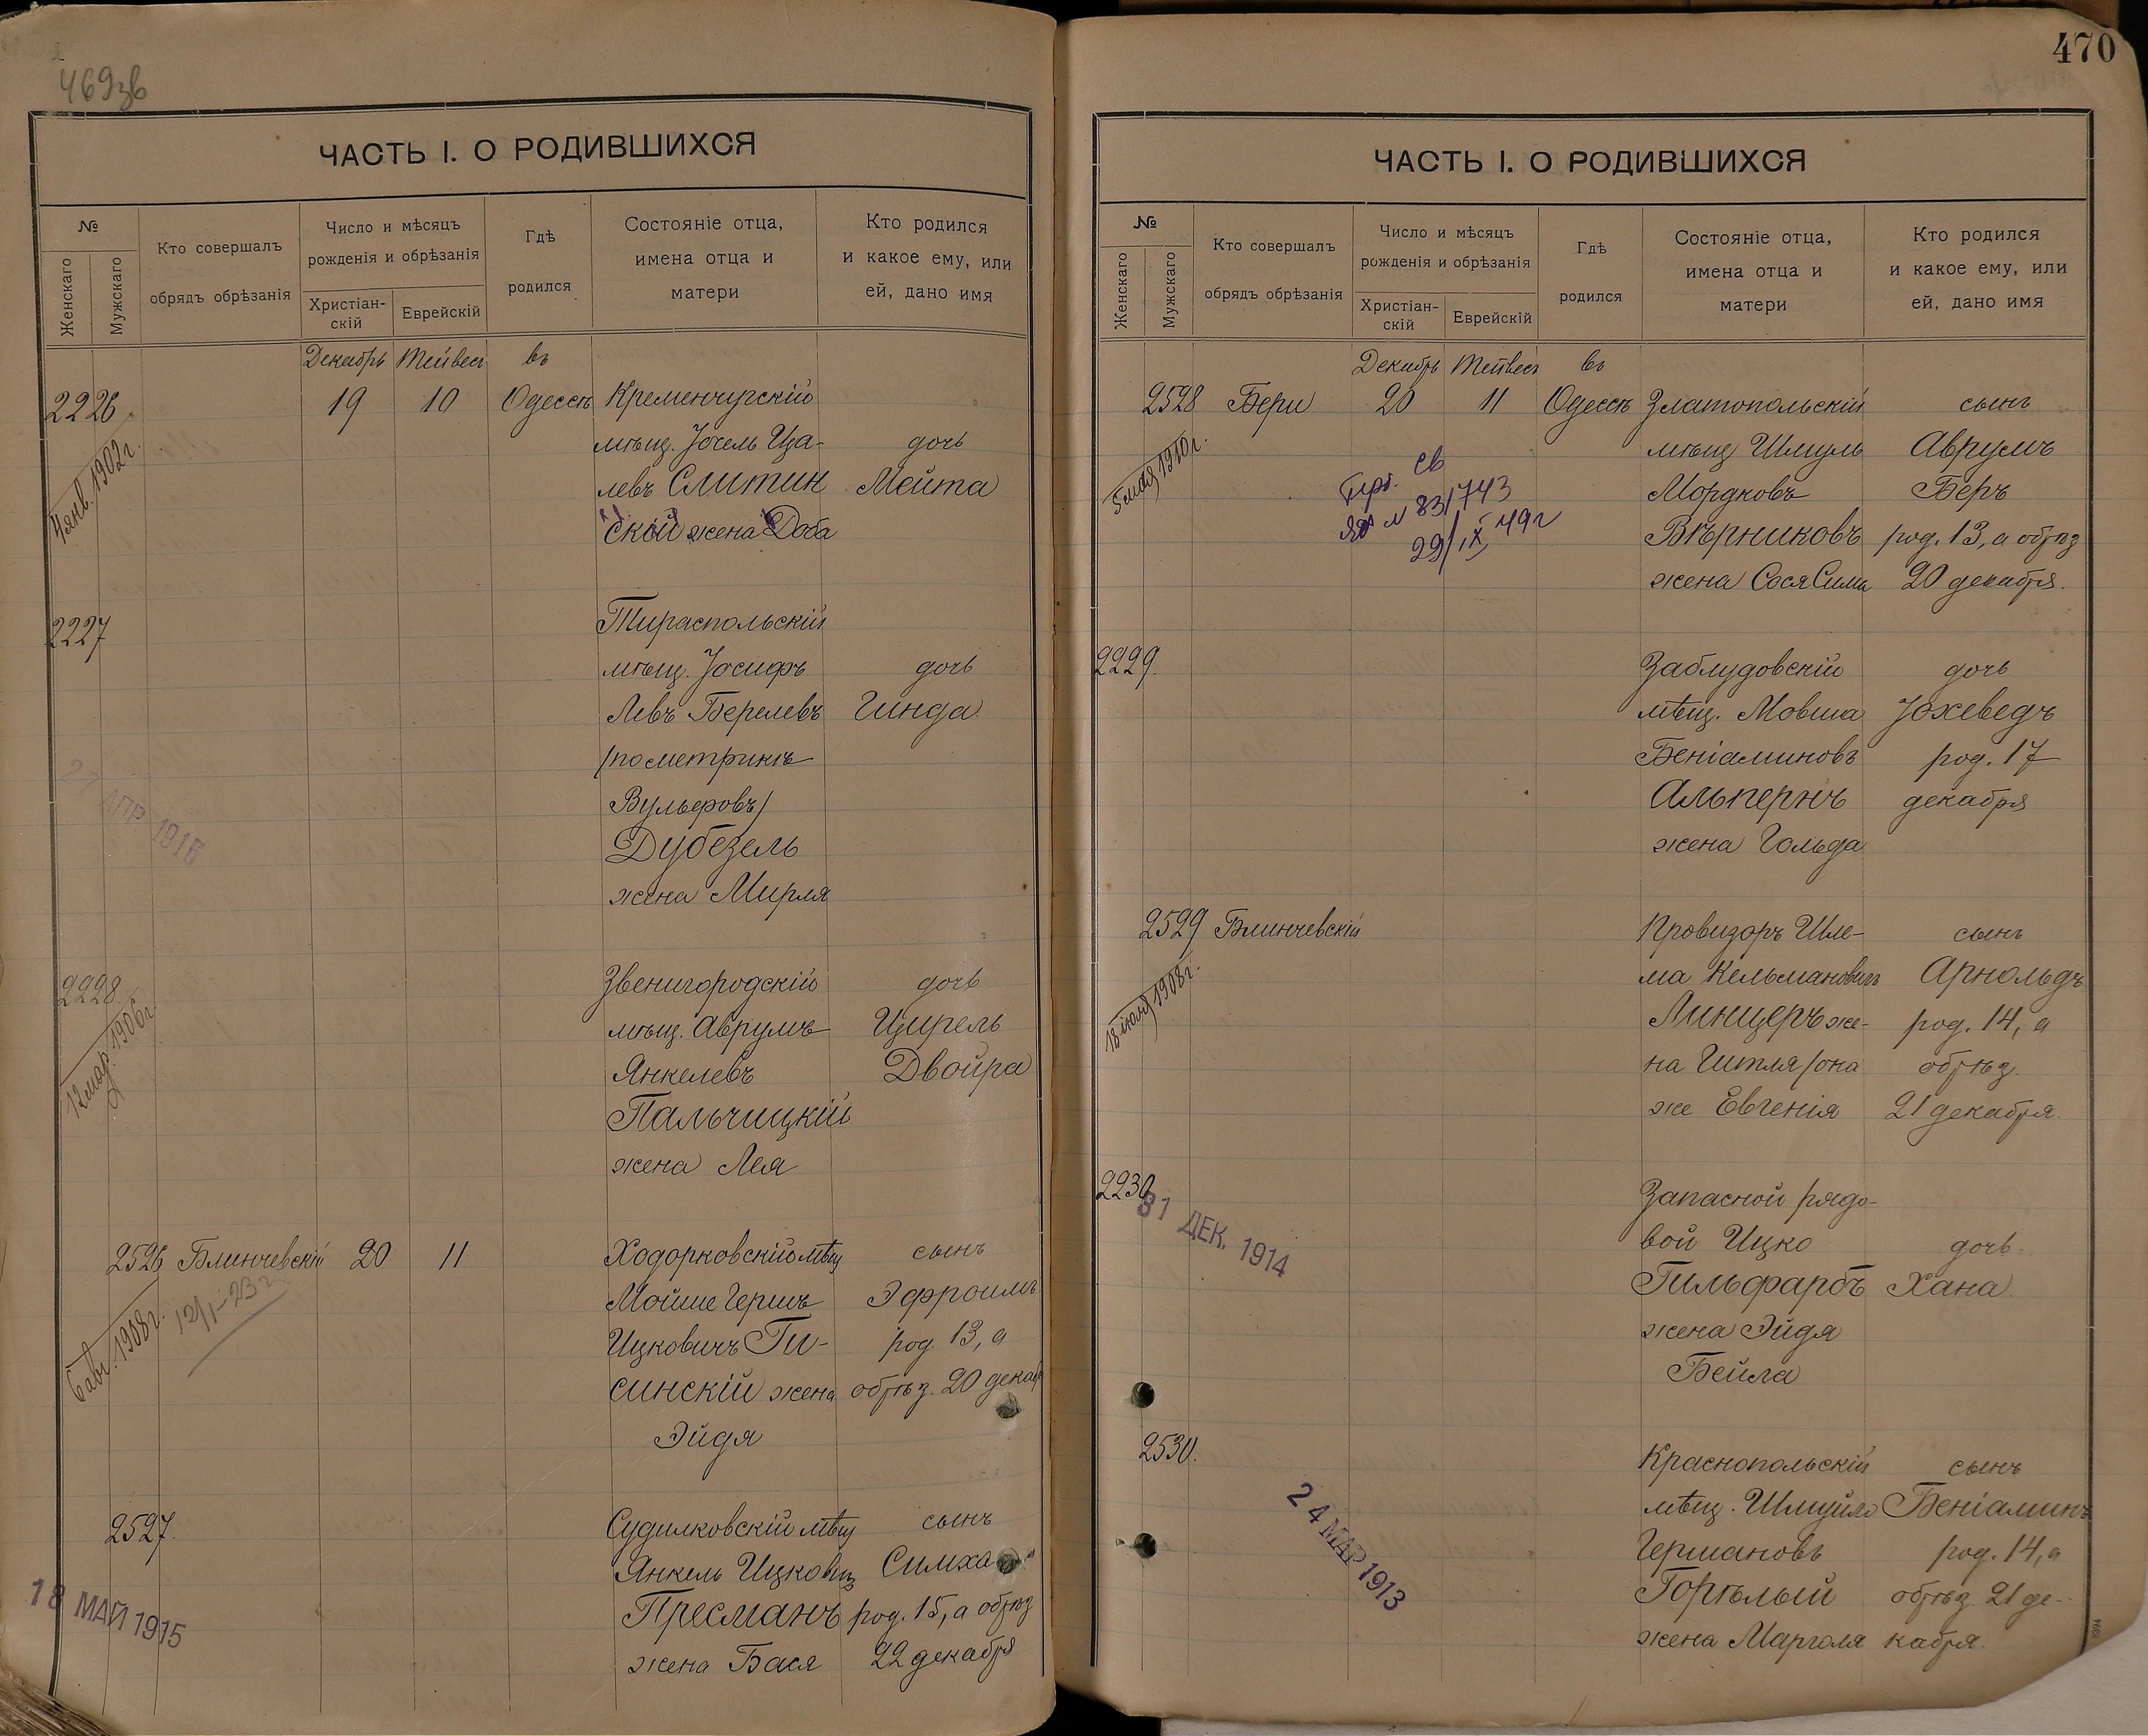 469зв
ЧАСТЬ I. О РОДИВШИХСЯ
№
Женскаго
Мужскаго
Кто совершалъ
обрядъ обрѣзанія
Число и мѣсяцъ
рожденія и обрѣзанія
Христіан-
скій
Еврейскій
Гдѣ
родился
Состояніе отца,
имена отца и
матери
Кто родился
и какое ему, или
ей, дано имя
Декабрь Тейвесъ въ
2226 19 10 Одессѣ Кременчугскій
мѣщ. Іосель Ца- дочь
левъ Слитин Мейта
ской жена Доба
4 янв. 1902 г.
2227 Тираспольскій
мѣщ. Іосифъ дочь
Левъ Берелевъ Гинда
/по метрикѣ
Вульфовъ/
Дубезель
жена Мирля
27 АПР 1916
2228 Звенигородскій дочь
мѣщ. Аврумъ Цирель
Янкелевъ Двойра
Пальчицкій
жена Лея
12 мар. 1906 г.
2526 Блинчевскій 20 11 Ходорковскій мѣщ сынъ
Мойше Гершъ Эфроимъ
Ицковичъ Ти- род. 13, а
синскій жена обрѣз. 20 декаб
Эйдя
6 авг. 1908 г.
12/I-23 г
2527. Судилковскій мѣщ сынъ
Янкель Ицковъ Симха
Пресманъ род. 15, а обрѣз
жена Бася 22 декабря
18 МАЙ 1915
470
ЧАСТЬ I. О РОДИВШИХСЯ
№
Женскаго
Мужскаго
Кто совершалъ
обрядъ обрѣзанія
Число и мѣсяцъ
рожденія и обрѣзанія
Христіан-
скій
Еврейскій
Гдѣ
родился
Состояніе отца,
имена отца и
матери
Кто родился
и какое ему, или
ей, дано имя
Декабрь Тейвесъ въ
2528 Бери 20 11 Одессѣ Златопольскій сынъ
мѣщ Шмуль Аврумъ
Мордковъ Беръ
Вѣрниковъ род. 13, а обрѣз
жена Сося Сима 20 декабря.
5 мая 1910 г.
св
№ 83/743
29/IX 49 г
2229. Заблудовскій дочь
мѣщ. Мовша Іохеведъ
Беніаминовъ род. 17
Альпернъ декабря
жена Гольда
2529 Блинчевскій Провизоръ Шле- сынъ
ма Кельмановичъ Арнольдъ
Линцеръ же- род. 14, а
на Гитля /она обрѣз.
же Евгенія 21 декабря.
18 іюля 1908 г.
2230 Запасной рядо-
вой Ицко дочь
Гильфарбъ Хана.
жена Эйдя
Бейла
31 ДЕК. 1914
2530. Краснопольскій сынъ
мѣщ. Шмуйло Беніаминъ
Гершановъ род. 14, а
Горѣлый обрѣз. 21 де-
жена Марголя кабря.
24 МАР 1913